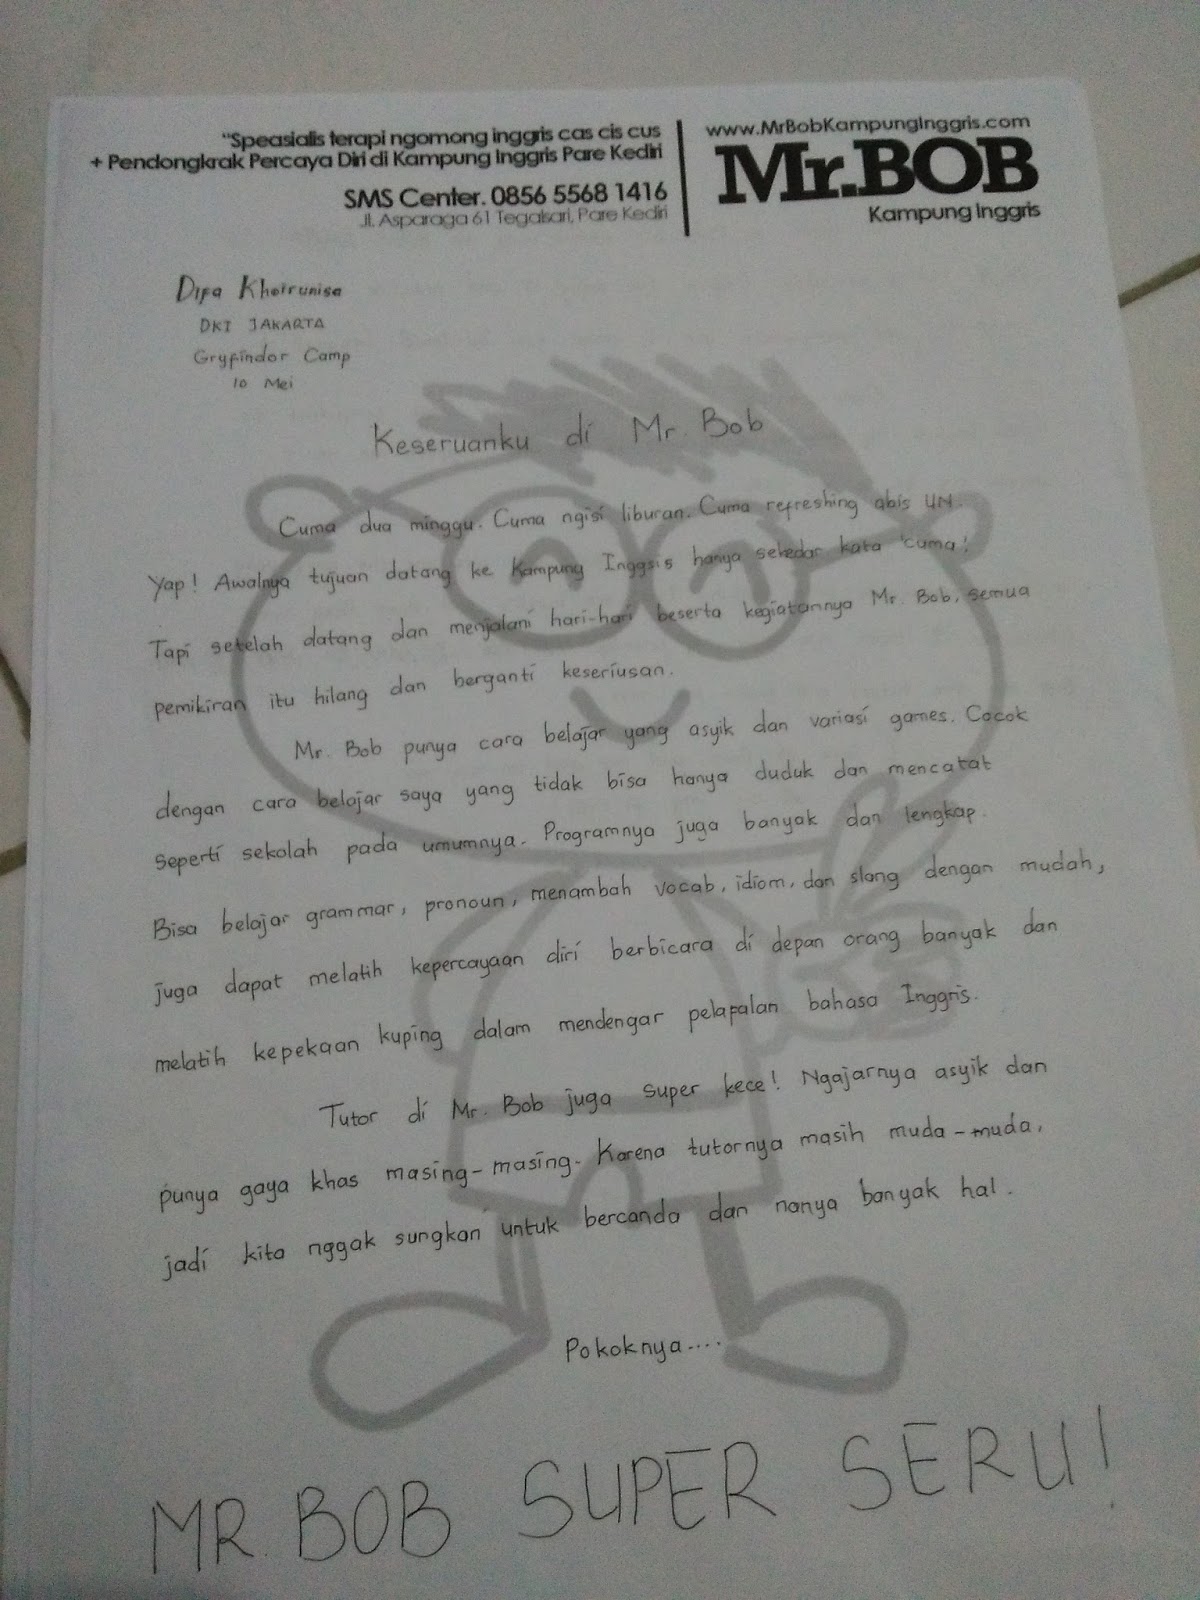 "Speasialis terapi ngomong inggris cas cis cus
+ Pendongkrak Percaya Diri di Kampung Inggris Pare Kediri
SMS Center. 0856 5568 1416
Jl. Asparaga 61 Tegalsari, Pare Kediri
www.MrBobKampungInggris.com
Mr.BOB
Kampung Inggris
Difa Khoirunisa
DKI JAKARTA
Gryfindor Camp
10 Mei
Keseruanku di Mr. Bob
Cuma dua minggu. Cuma ngisi liburan. Cuma refreshing abis UN.
Yap! Awalnya tujuan datang ke Kampung Inggsis hanya sekedar kata 'cuma'.
Tapi setelah datang dan menjalani hari-hari beserta kegiatannya Mr. Bob, semua
pemikiran itu hilang dan berganti keseriusan.
Mr. Bob punya cara belajar yang asyik dan variasi games. Cocok
dengan cara belajar saya yang tidak bisa hanya duduk dan mencatat
seperti sekolah pada umumnya. Programnya juga banyak dan lengkap.
Bisa belajar grammar, pronoun, menambah vocab, idiom, dan slang dengan mudah,
juga dapat melatih kepercayaan diri berbicara di depan orang banyak dan
melatih kepekaan kuping dalam mendengar pelapalan bahasa Inggris.
Tutor di Mr. Bob juga super kece! Ngajarnya asyik dan
punya gaya khas masing-masing. Karena tutornya masih muda-muda,
jadi kita nggak sungkan untuk bercanda dan nanya banyak hal.
Pokoknya....
MR. BOB SUPER SERU!